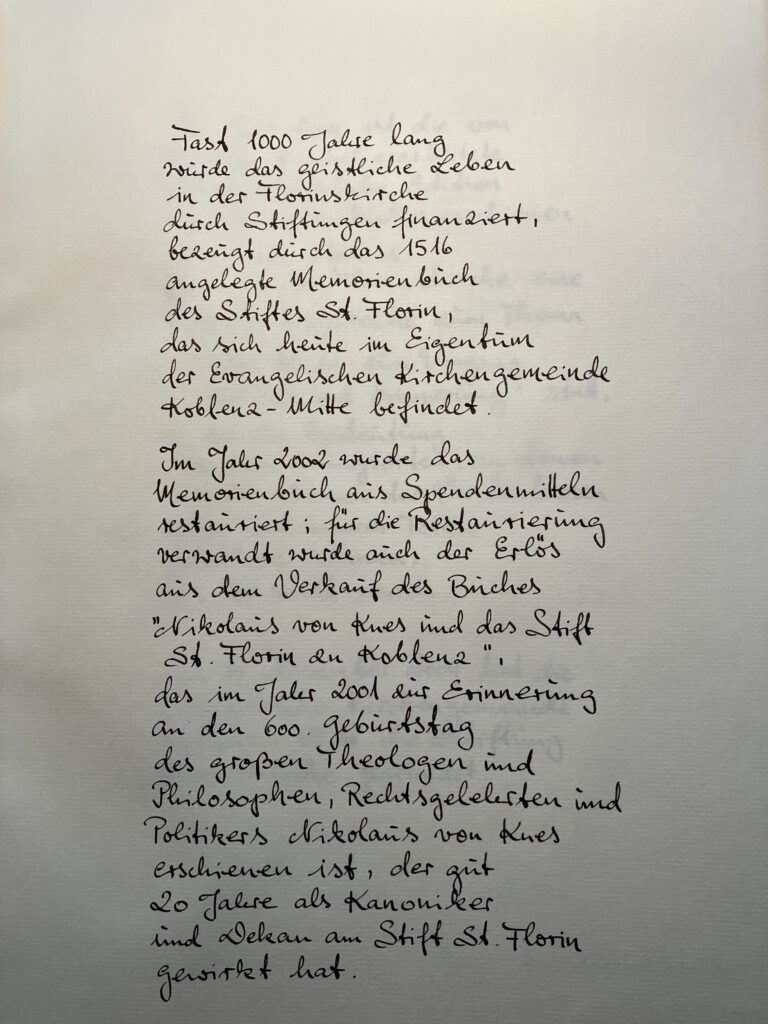 Fast 1000 Jahre lang
wurde das geistliche Leben
in der Florinskirche
durch Stiftungen finanziert,
bezeugt durch das 1516
angelegte Memorienbuch
des Stiftes St. Florin,
das sich heute im Eigentum
der Evangelischen Kirchengemeinde
Koblenz-Mitte befindet.
Im Jahr 2002 wurde das
Memorienbuch aus Spendenmitteln
restauriert; für die Restaurierung
verwandt wurde auch der Erlös
aus dem Verkauf des Buches
"Nikolaus von Kues und das Stift
St. Florin zu Koblenz",
das im Jahr 2001 zur Erinnerung
an den 600. Geburtstag
des großen Theologen und
Philosophen, Rechtsgelehrten und
Politikers Nikolaus von Kues
erschienen ist, der gut
20 Jahre als Kanoniker
und Dekan am Stift St. Florin
gewirkt hat.